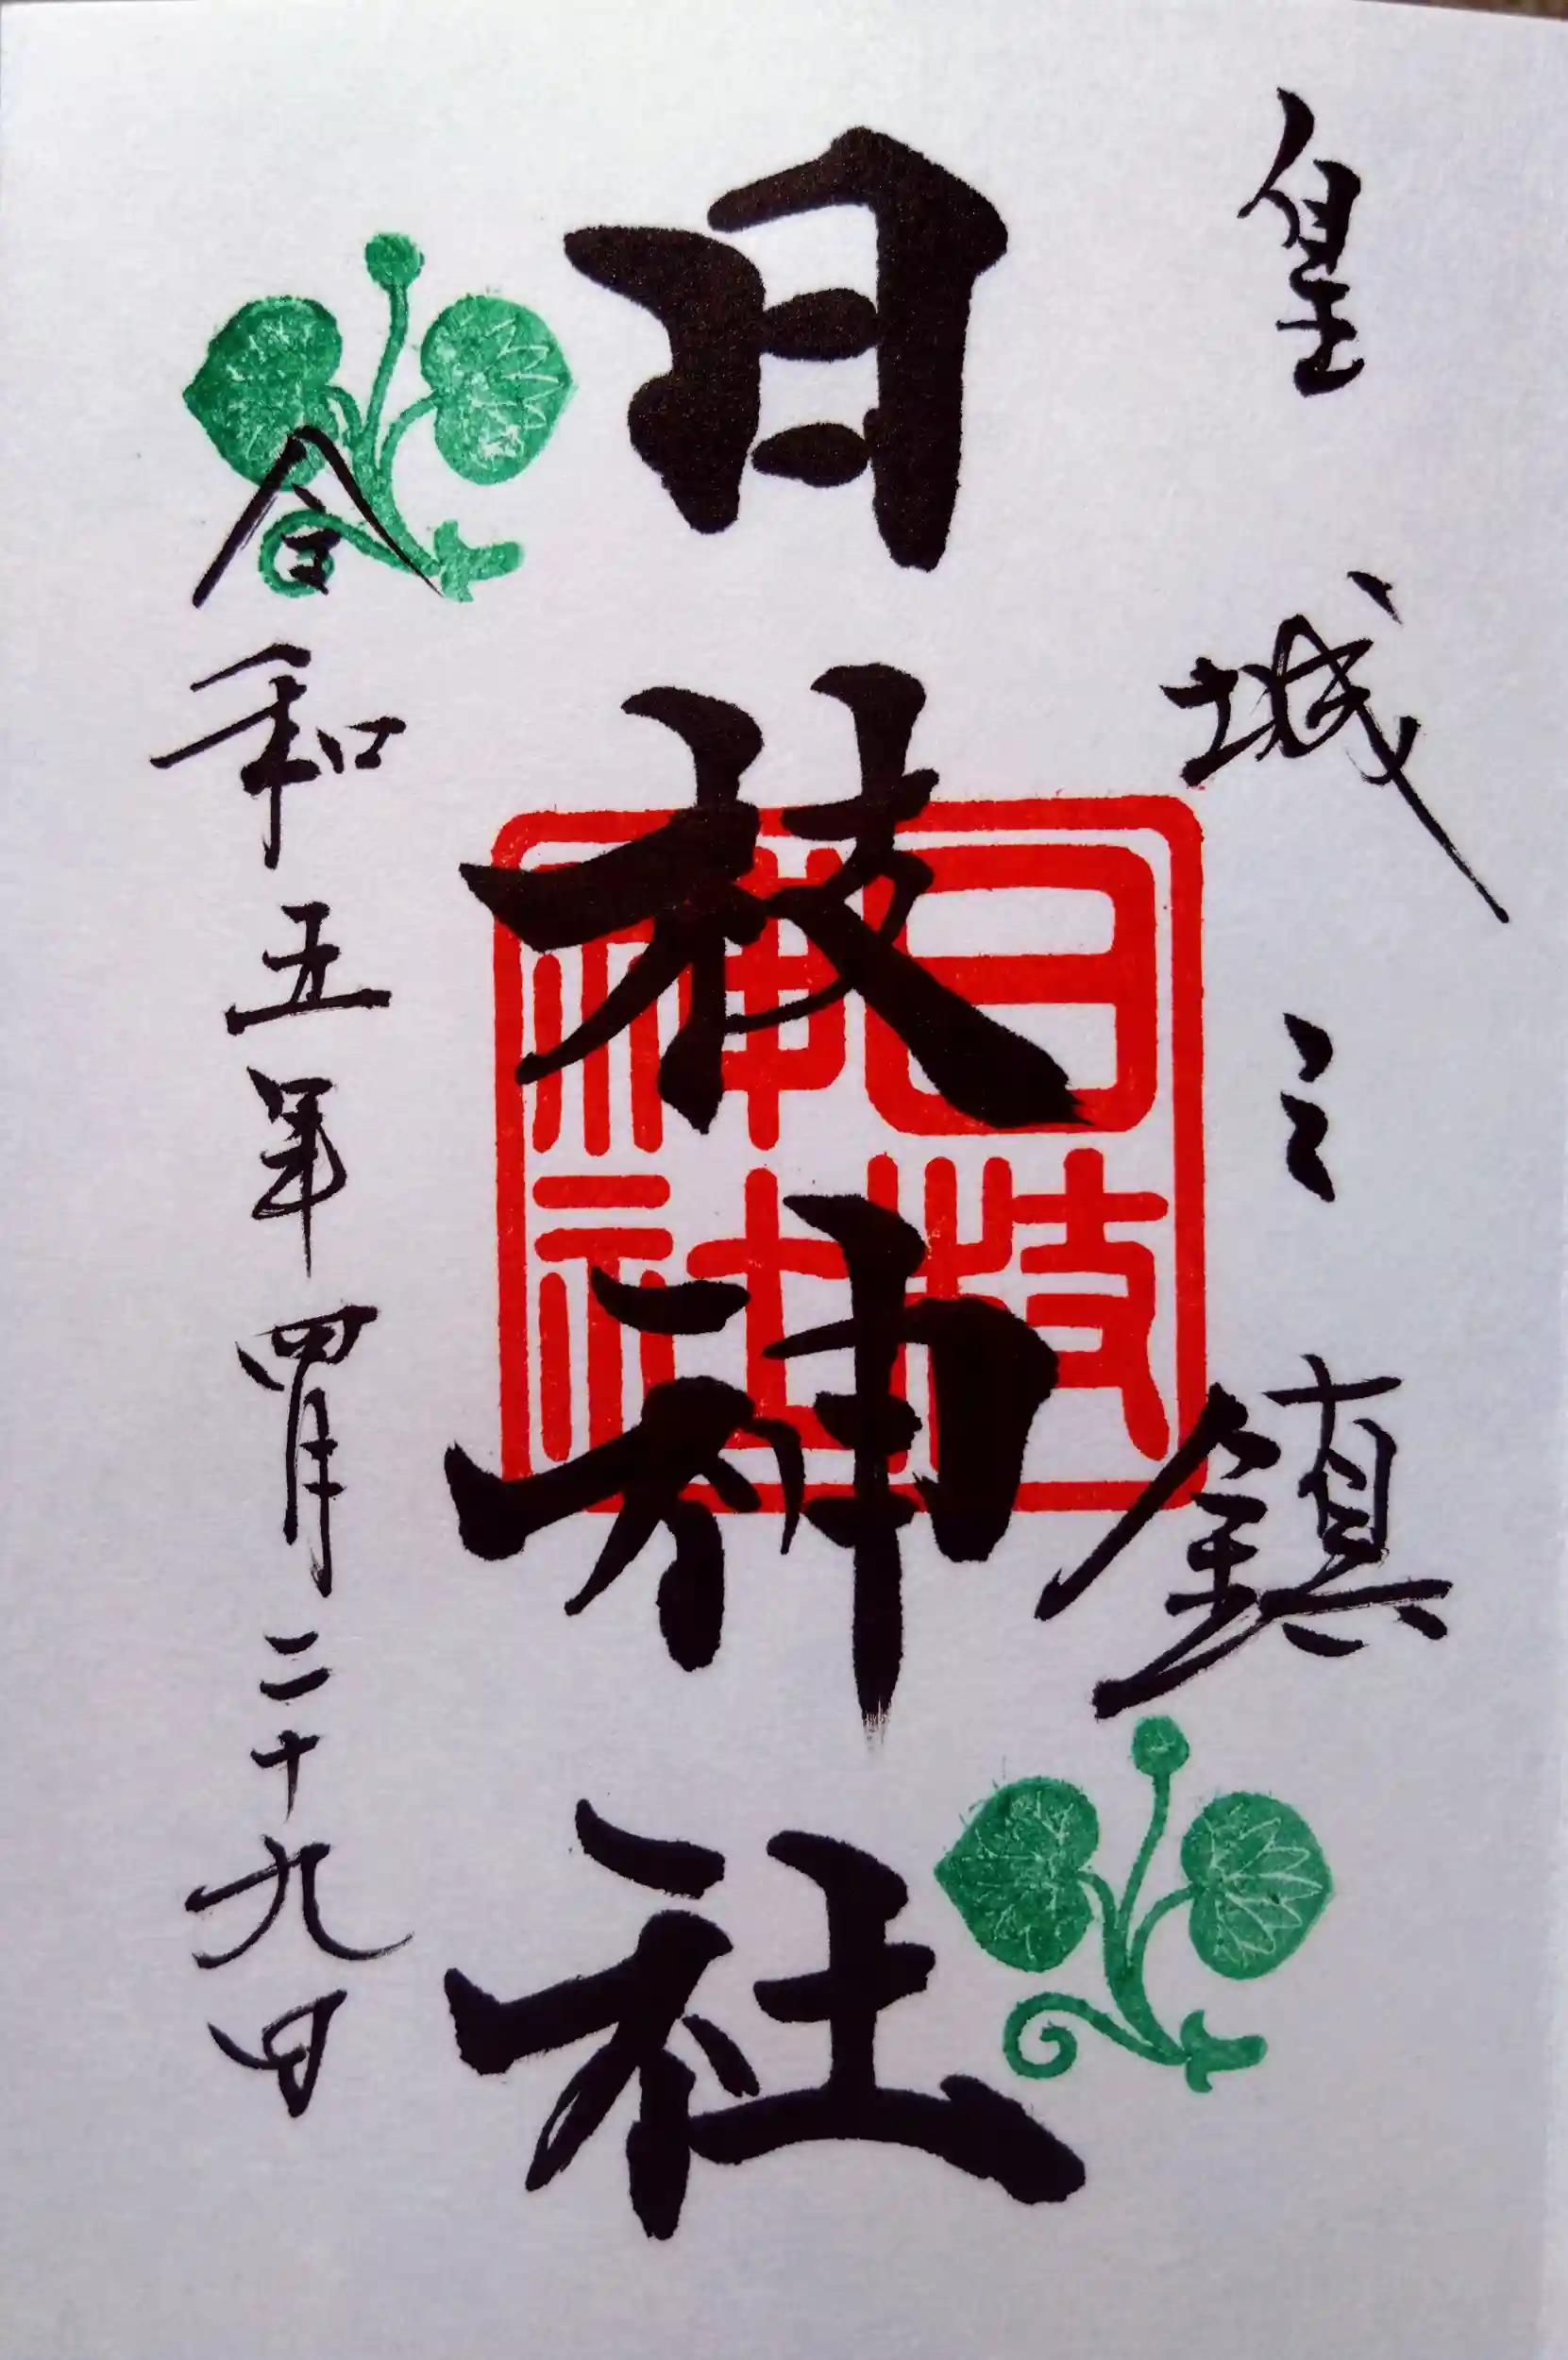 皇城之鎮
日枝神社
日枝
神社
令和五年四月二十九日